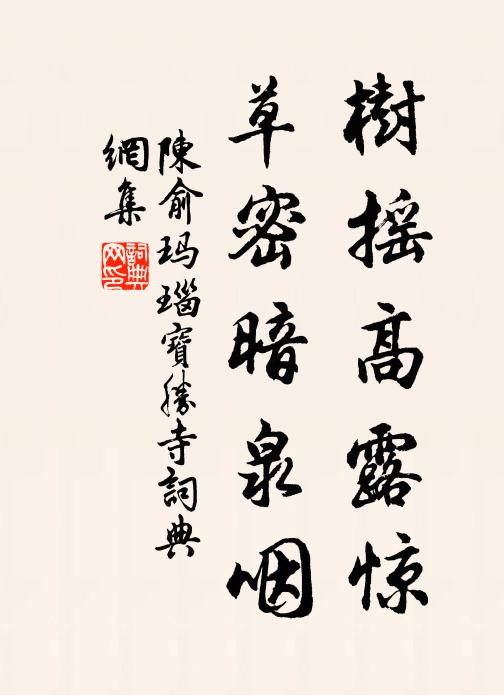 樹摇高露惊
草密暗泉咽
陳俞玛瑙寶勝寺詞典
網集
詞典网印